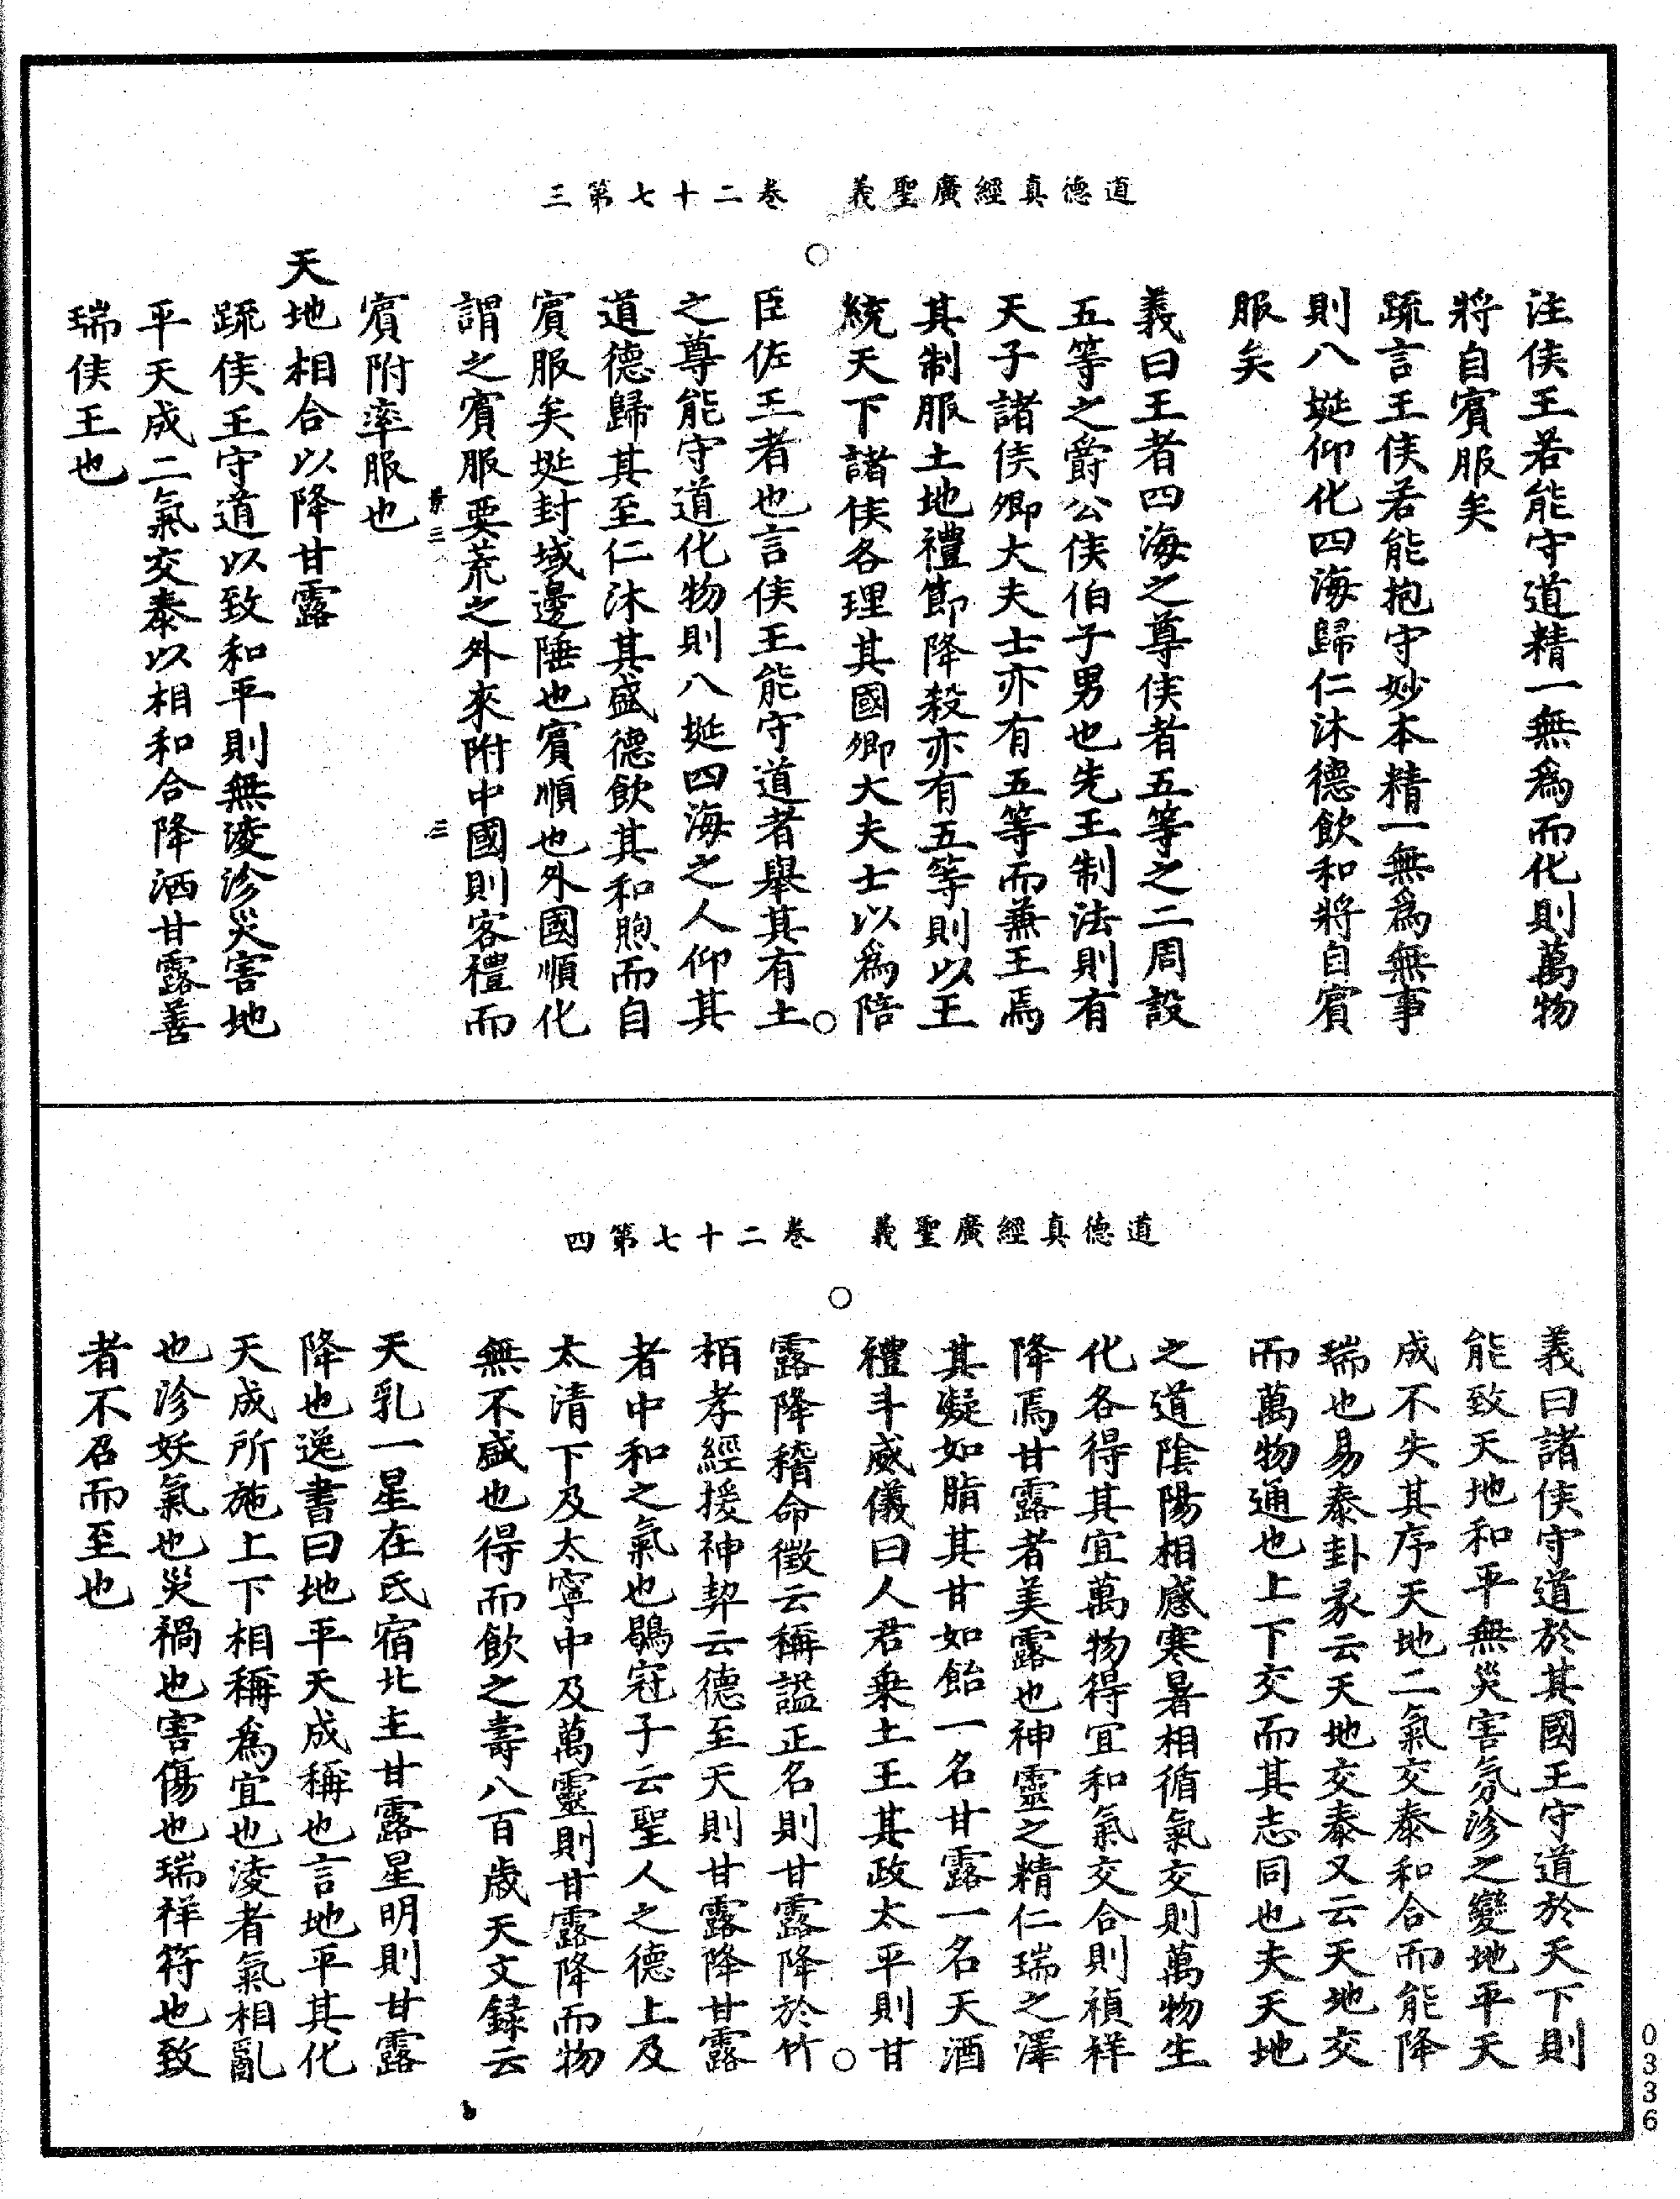 道德真經廣聖義　卷二十七第三
注侯王若能守道精一無為而化則萬物
將自賓服矣
疏言王侯若能抱守妙本精一無為無事
則八埏仰化四海歸仁沐德飲和將自賓
服矣
義曰王者四海之尊侯者五等之二周設
五等之爵公侯伯子男也先王制法則有
天子諸侯卿大夫士亦有五等而兼王焉
其制服土地禮節降殺亦有五等則以王
統天下諸侯各理其國卿大夫士以為陪
臣佐王者也言侯王能守道者舉其有土
之尊能守道化物則八埏四海之人仰其
道德歸其至仁沐其盛德飲其和煦而自
賓服矣埏封域邊陲也賓順也外國順化
謂之賓服要荒之外來附中國則客禮而
賓附率服也
天地相合以降甘露
疏侯王守道以致和平則無淩沴災害地
平天成二氣交泰以相和合降洒甘露善
瑞侯王也
道德真經廣聖義　卷二十七第四
義曰諸侯守道於其國王守道於天下則
能致天地和平無災害氛沴之變地平天
成不失其序天地二氣交泰和合而能降
瑞也易泰卦彖云天地交泰又云天地交
而萬物通也上下交而其志同也夫天地
之道陰陽相感寒暑相循氣交則萬物生
化各得其宜萬物得宜和氣交合則禎祥
降焉甘露者美露也神靈之精仁瑞之澤
其凝如脂其甘如飴一名甘露一名天酒
禮斗威儀曰人君乗土王其政太平則甘
露降稽命徵云稱謚正名則甘露降於竹
栢孝經援神契云德至天則甘露降甘露
者中和之氣也鶡冠子云聖人之德上及
太清下及太寧中及萬靈則甘露降而物
無不盛也得而飲之壽八百歲天文録云
天乳一星在氐宿北主甘露星明則甘露
降也逸書曰地平天成稱也言地平其化
天成所施上下相稱為宜也淩者氣相亂
也沴妖氣也災禍也害傷也瑞祥符也致
者不召而至也
0336